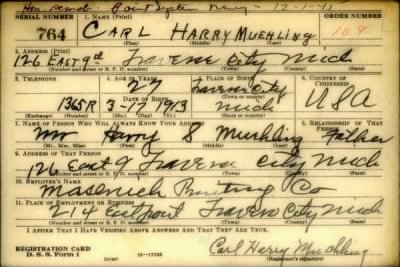 SERIAL NUMBER
1. NAME (Print)
ORDER NUMBER
764 CARL HARRY MUEHLING 109
(First) (Middle) (Last)
2. ADDRESS (Print)
126 EAST 9th Traverse City Mich
(Number and street or R. F. D. number) (Town) (County) (State)
3. TELEPHONE
4. AGE IN YEARS
5. PLACE OF BIRTH
6. COUNTRY OF CITIZENSHIP
27 Traverse City
DATE OF BIRTH
1365R 3-17-1913 Mich USA
7. NAME OF PERSON WHO WILL ALWAYS KNOW YOUR ADDRESS
8. RELATIONSHIP OF THAT PERSON
Mr Harry S Muehling Father
(Mr., Mrs., Miss) (First) (Middle) (Last)
9. ADDRESS OF THAT PERSON
126 East 9 Traverse City Mich
(Number and street or R. F. D. number) (Town) (County) (State)
10. EMPLOYER'S NAME
Printing Co
11. PLACE OF EMPLOYMENT OR BUSINESS
214 Traverse City Mich
(Number and street or R. F. D. number) (Town) (County) (State)
I AFFIRM THAT I HAVE VERIFIED ABOVE ANSWERS AND THAT THEY ARE TRUE.
REGISTRATION CARD
D. S. S. Form 1 (over) 16-17105
Carl Harry Muehling
(Registrant's signature)